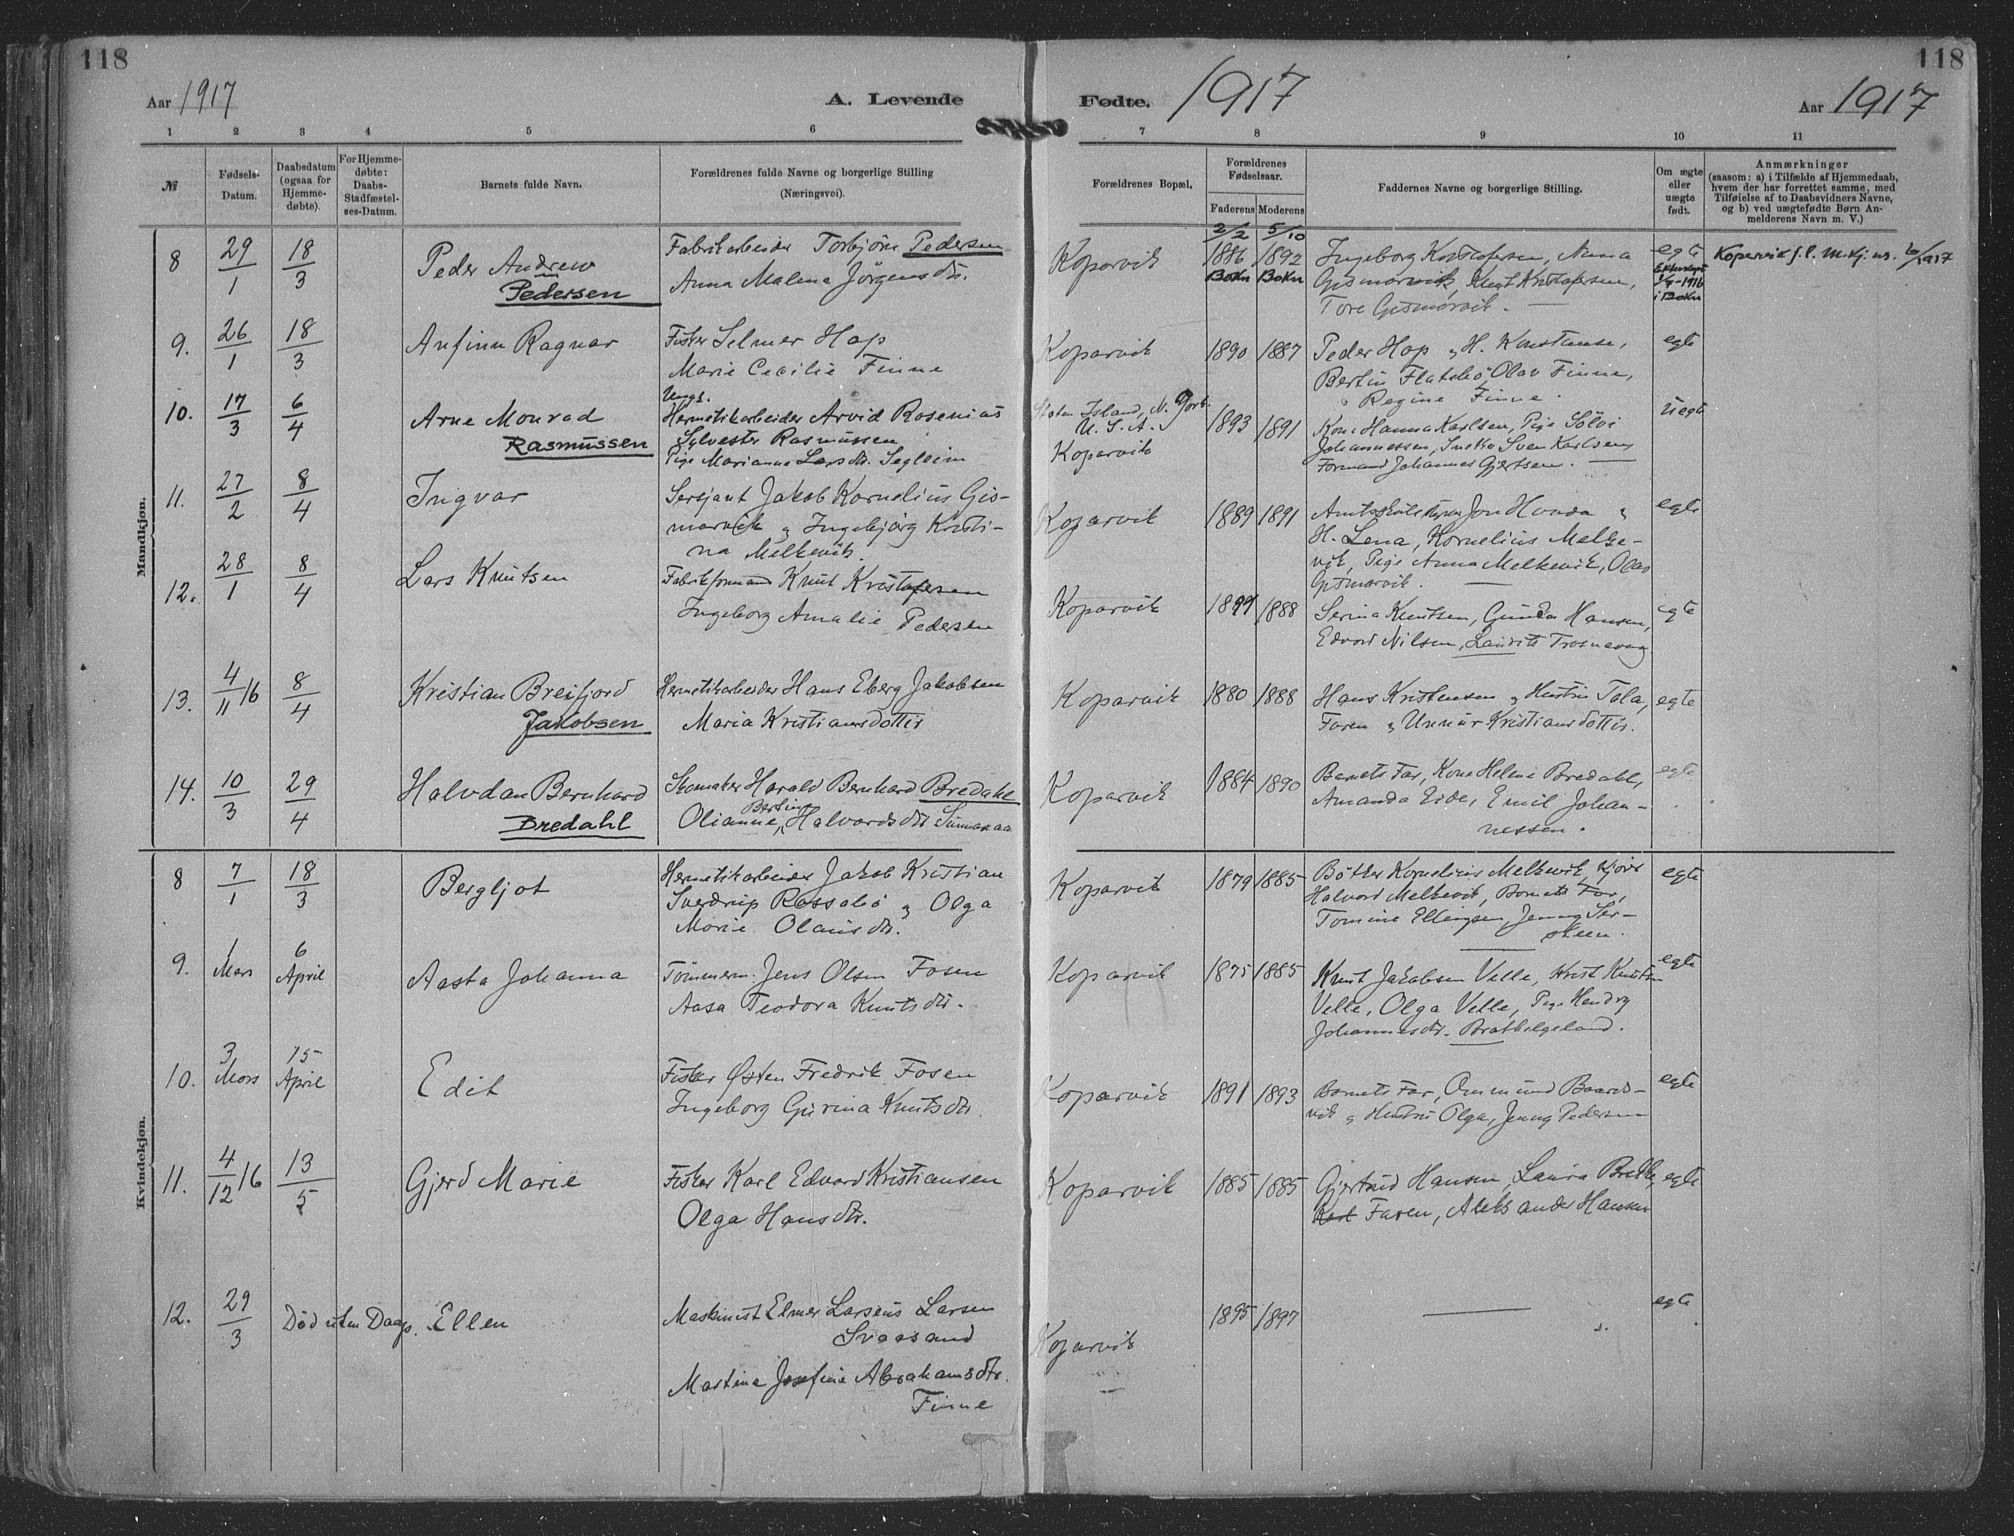 118
118
Aar 1917
A. Levende
Fødte.
1917
Aar 1917
1 2 3 4 5 6 7 8 9 10 11
№
Fødsels-Datum.
Daabsdatum (ogsaa for Hjemme-døbte).
For Hjemme-døbte: Daabs-Stadfæstel-ses-Datum.
Barnets fulde Navn.
Forældrenes fulde Navne og borgerlige Stilling (Næringsvei).
Forældrenes Bopæl.
Forældrenes Fødselsaar.
Faderens Moderens
Faddernes Navne og borgerlige Stilling.
Om ægte eller uægte født.
Anmærkninger
(saasom: a) i Tilfælde af Hjemmedaab,
hvem der har forrettet samme, med
Tilføielse af to Daabsvidners Navne,
og b) ved uægtefødte Børn An-
melderens Navn m. V.)
Mandkjøn.
8 29/1 18/3 Peder Andrew
Pedersen
Fabrikarbeider Torbjörn Pedersen
Anna Malena Jörgensdtr.
Koparvik
2/2 5/10
1886 1892
Bokn Bokn
Ingeborg Kristofersen, Anna
Gismarvik, Knut Kristofersen,
Tore Gismarvik.
egte
i Bokn
Kopervik
9. 26/1 18/3 Anfinn Ragnar
Fisker Selmer Hop
Marie Cecilie Finne
Koparvik
1890 1887
Peder Hop og H. Konstanse,
Bertin Flatebö, Olav Finne,
Regine Finne.
egte
10. 17/3 6/4 Arne Monrad
Rasmussen
Ungk.
Hermetikarbeider Arvid Rosenius
Sylvester Rasmussen
Pige Marianne Larsdtr. Segleim
Staten Island, N. York
U. S. A.
Koparvik
1893 1891
Kone Hanna Karlsen, Pige Sölvi
Johannessen, Snekker Sven Karlsen,
Formand Johannes Gjertsen.
uegte
11. 27/2 8/4 Ingvar
Sersjant Jakob Kornelius Gis-
marvik og Ingebjørg Kristi-
na Melkevik.
Koparvik
1889 1891
Amtsskolebestyrer Jon Hovda og
H. Lena, Kornelius Melke-
vik, Pige Anna Melkevik, Olav
Gismarvik.
egte
12. 28/1 8/4 Lars Knutsen
Fabrikformand Knut Kristofersen
Ingeborg Amalie Pedersen
Koparvik
1888
Serina Knutsen, Gunda Hansen,
Edvard Nilsen, Laurits Trosnavag
egte
13. 4/11 16 8/4 Kristian Breifjord
Jakobsen
Hermetikarbeider Hans Eberg Jakobsen
Maria Kristiansdottir
Koparvik
1880 1888
Hans Kristensen og Hustru Tala,
Faren og Unnur Kristiansdottir.
egte
14. 10/3 29/4 Halvdan Bernhard
Bredahl
Skomaker Harald Bernhard Bredahl
Bertine
Olianne, Halvardsdtr Sunnanaa
Koparvik
1884 1890
Barnets Far, Kone Helene Bredahl,
Amanda Eide, Emil Johan-
nessen.
egte
Kvindekjøn.
8 7/1 18/3 Bergljot
Hermetikarbeider Jakob Kristian
Sverdrup Rossabö og Olga
Marie Olausdtr.
Koparvik
1879 1885
Bötker Kornelius Melkevik,
Halvard Melkevik, Barnets Far,
Tomine Ellingsen, Jenny Ser-
skeen.
egte
9. 1 Mars 6 April Aasta Johanna
Tömmerm. Jens Olsen Fosen
Aasa Teodora Knutsdtr.
Koparvik
1875 1885
Knut Jakobsen Velle, Knut Knutsen
Velle, Olga Velle, Pige Hendry
Johannesdtr. Brathelgeland.
egte
10. 3 Mars 15 April Edit
Fisker Østen Fredrik Fosen
Ingeborg Gurina Knutsdtr.
Koparvik
1891 1893
Barnets Far, Ommund Baards-
vik og Hustru Olga, Jenny Pedersen
egte
11. 4/12 16 13/5 Gjerd Marie
Fisker Karl Edvard Kristiansen
Olga Hansdtr.
Koparvik
1885 1885
Gjertrud Hansen, Laura Brekke,
Faren, Aleksander Hansen
egte
12. 29/3 Död uten Daap. Ellen
Maskinist Elmer Larsens Larsen
Svaasand
Martine Josefine Abrahamsdtr.
Finne
Koparvik
1895 1897
egte